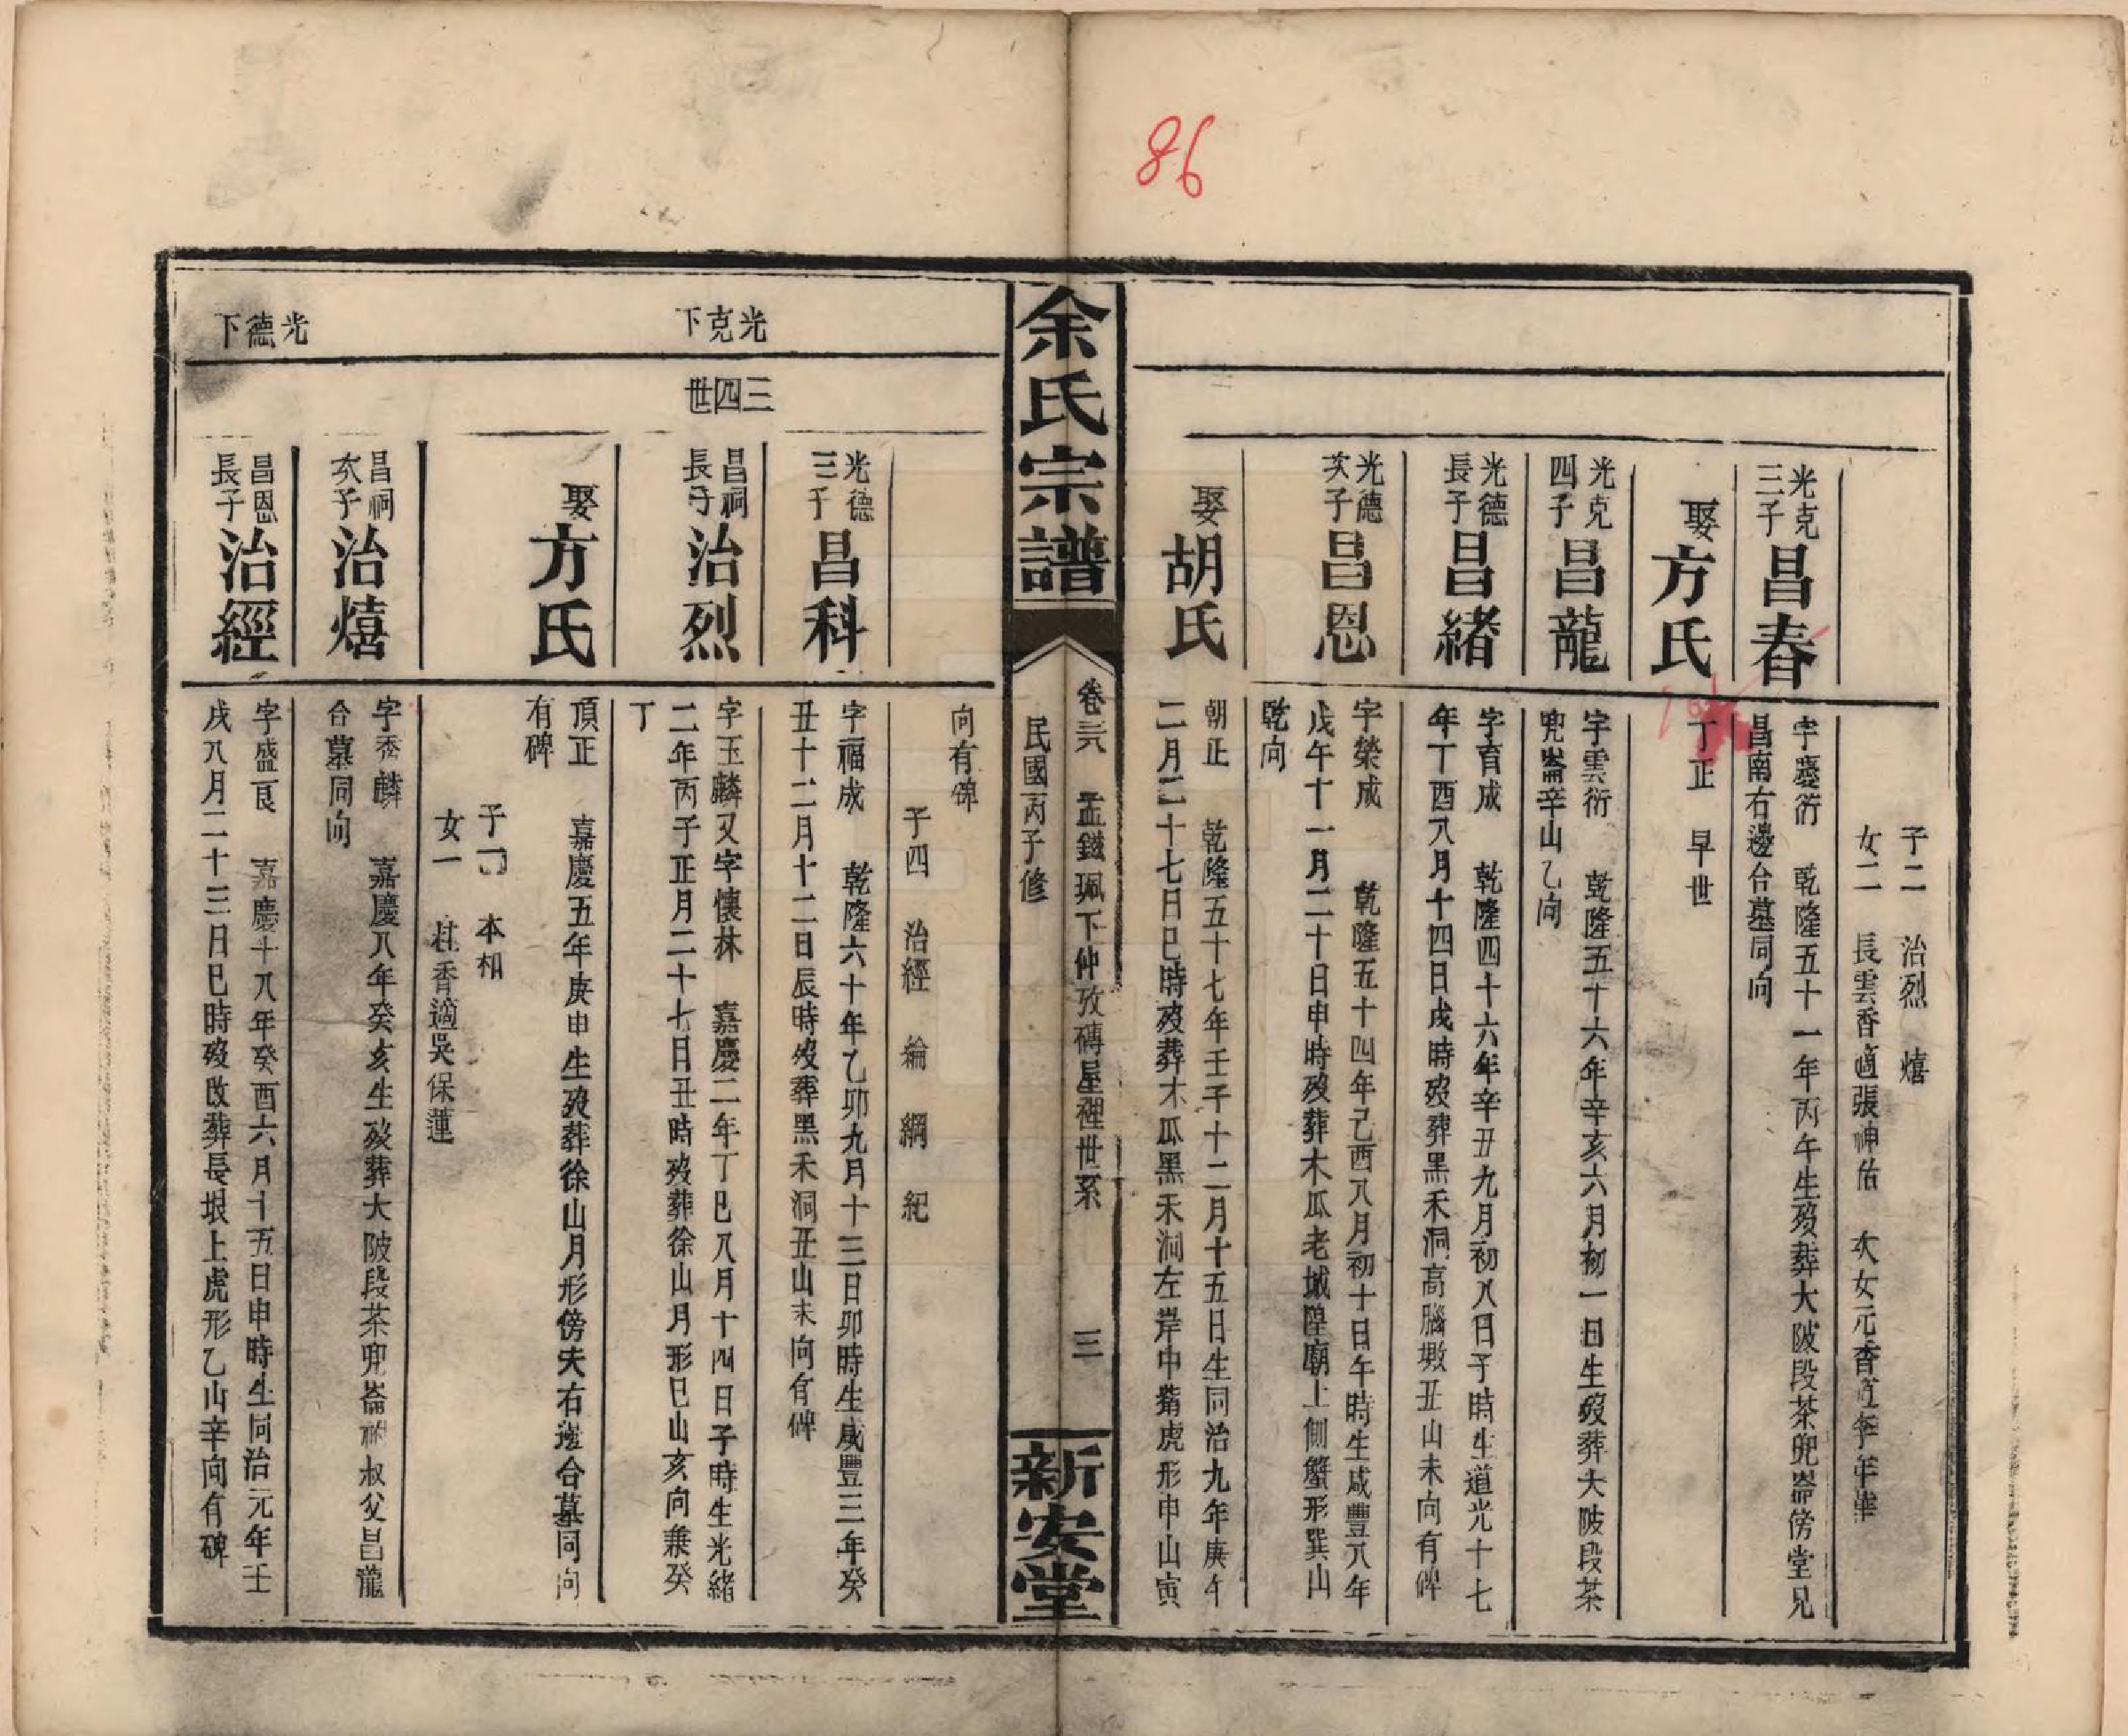 86
子二　治烈　熺
女二　長雲香適張神佑　次女元香
光克
三子
昌春
字慶衍　乾隆五十一年丙午生歿葬大陂段茶兜崙傍堂兄
昌南右邊合墓同向
娶
方氏
丁正　早世
光克
四子
昌龍
字雲衍　乾隆五十六年辛亥六月初一日生歿葬大陂段茶
兜崙辛山乙向
光德
長子
昌緒
字育成　乾隆四十六年辛丑九月初八日子時生道光十七
年丁酉八月十四日戌時歿葬黑禾洞高腦墩丑山未向有碑
光德
次子
昌恩
字榮成　乾隆五十四年己酉八月初十日午時生咸豐八年
戊午十一月二十日申時歿葬木瓜老城隍廟上側蟹形巽山
乾向
娶
胡氏
朝正　乾隆五十七年壬子十二月十五日生同治九年庚午
二月二十七日巳時歿葬木瓜黑禾洞左岸中嘴虎形申山寅
余氏宗譜
卷三六　孟鐵珮下仲攷磚屋裡世系　三
民國丙子修
新安堂
向有碑
子四　治經　綸　綱　紀
光德
三子
昌科
字福成　乾隆六十年乙卯九月十三日卯時生咸豐三年癸
丑十二月十二日辰時歿葬黑禾洞丑山未向有碑
光克下
三四世
昌祠
長子
治烈
字玉麟又字懷林　嘉慶二年丁巳八月十四日子時生光緒
二年丙子正月二十七日丑時歿葬徐山月形巳山亥向兼癸
丁
娶
方氏
頂正　嘉慶五年庚申生歿葬徐山月形傍夫右邊合墓同向
有碑
子一　本相
女一　桂香適吳保蓮
昌祠
次子
治熺
字秀麟　嘉慶八年癸亥生歿葬大陂段茶兜崙祔叔父昌龍
合墓同向
光德下
昌恩
長子
治經
字盛良　嘉慶十八年癸酉六月十五日申時生同治元年壬
戌八月二十三日巳時歿改葬長垠上虎形乙山辛向有碑